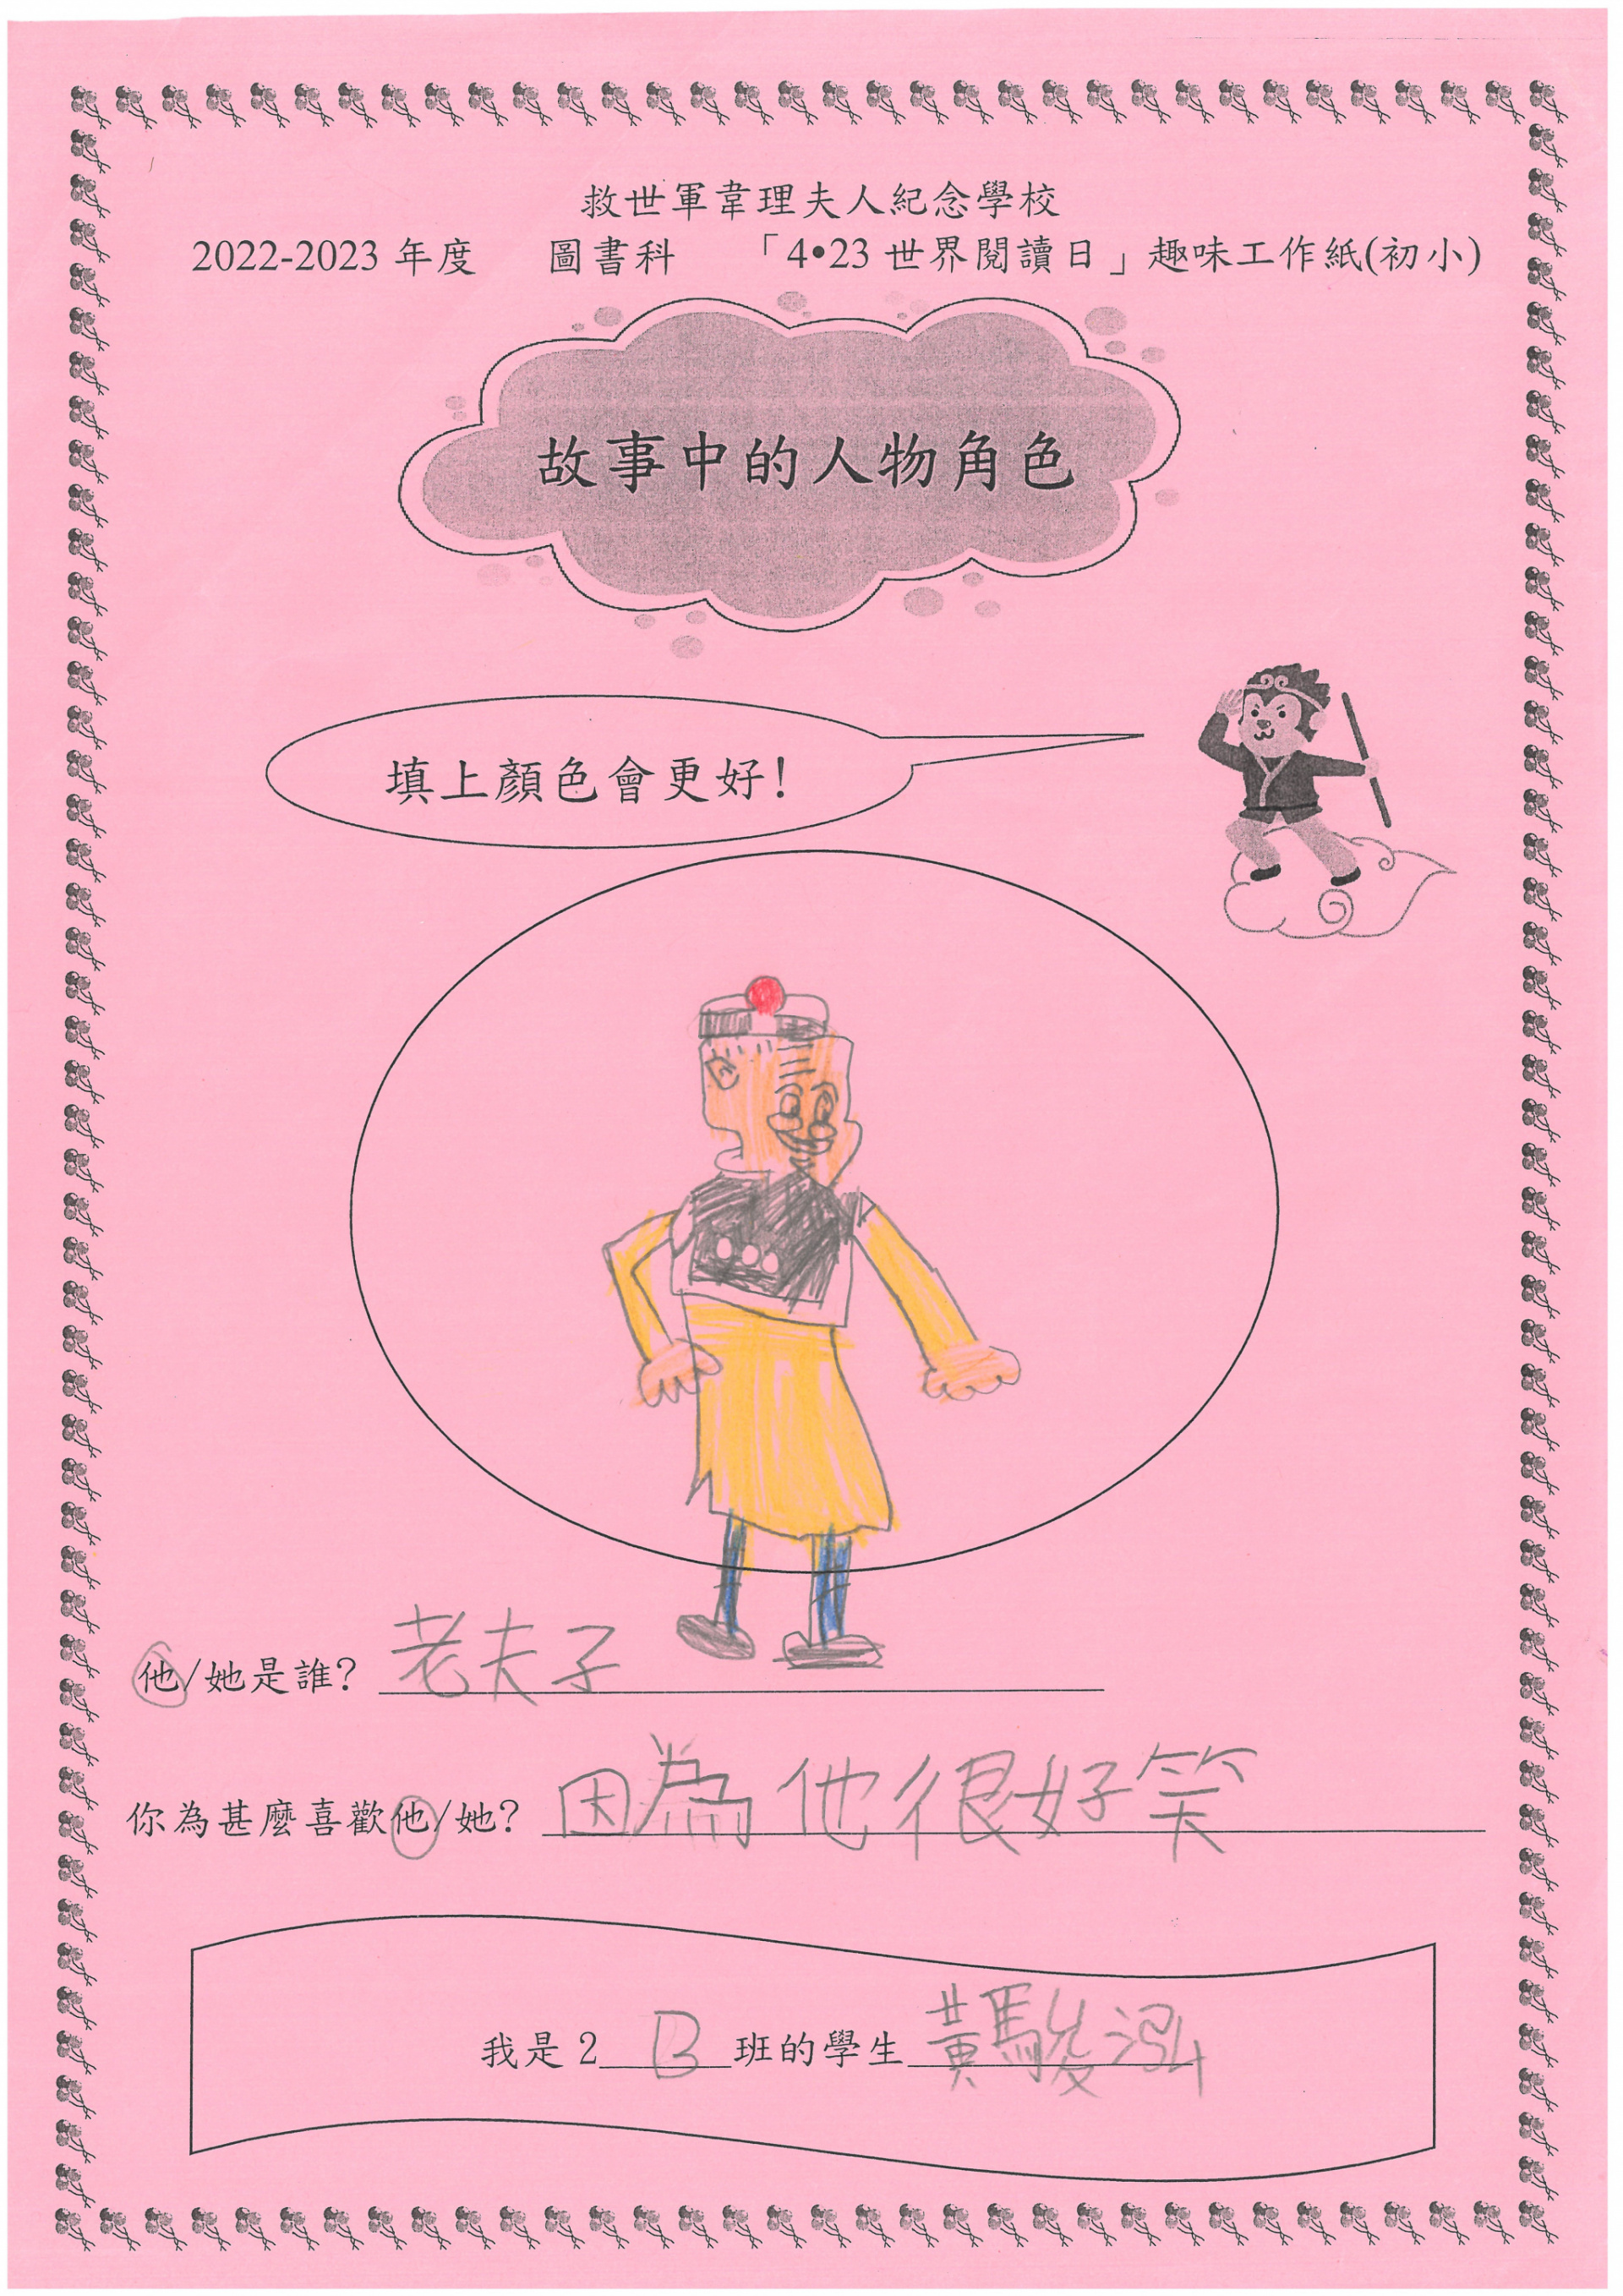 救世軍韋理夫人紀念學校
2022-2023 年度 圖書科 「4•23 世界閱讀日」趣味工作紙(初小)
故事中的人物角色
填上顏色會更好!
他/她是誰? 老夫子
你為甚麼喜歡他/她? 因為他很好笑
我是 2 B 班的學生 黃駿泓